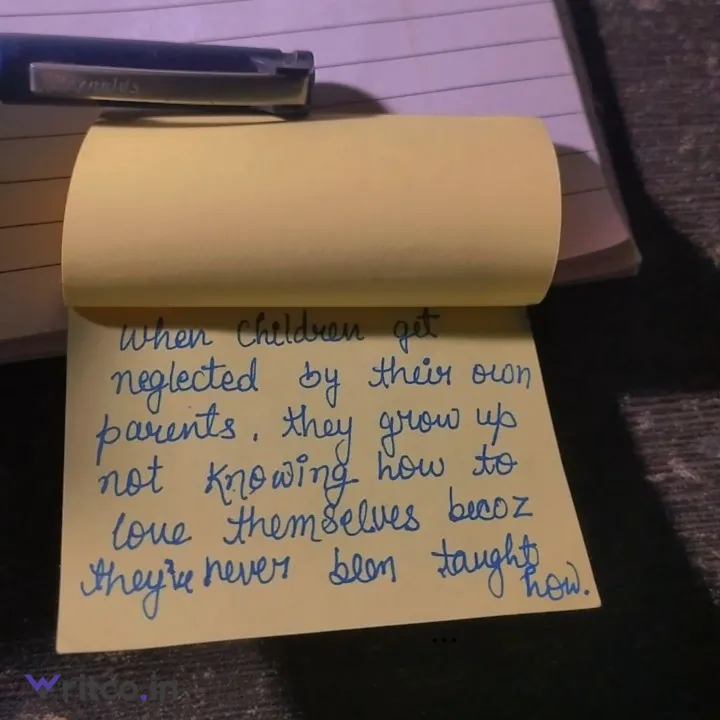 Reynolds
When children get
neglected by their own
parents, they grow up
not knowing how to
love themselves becoz
they've never been taught
how.
...
Writco.in